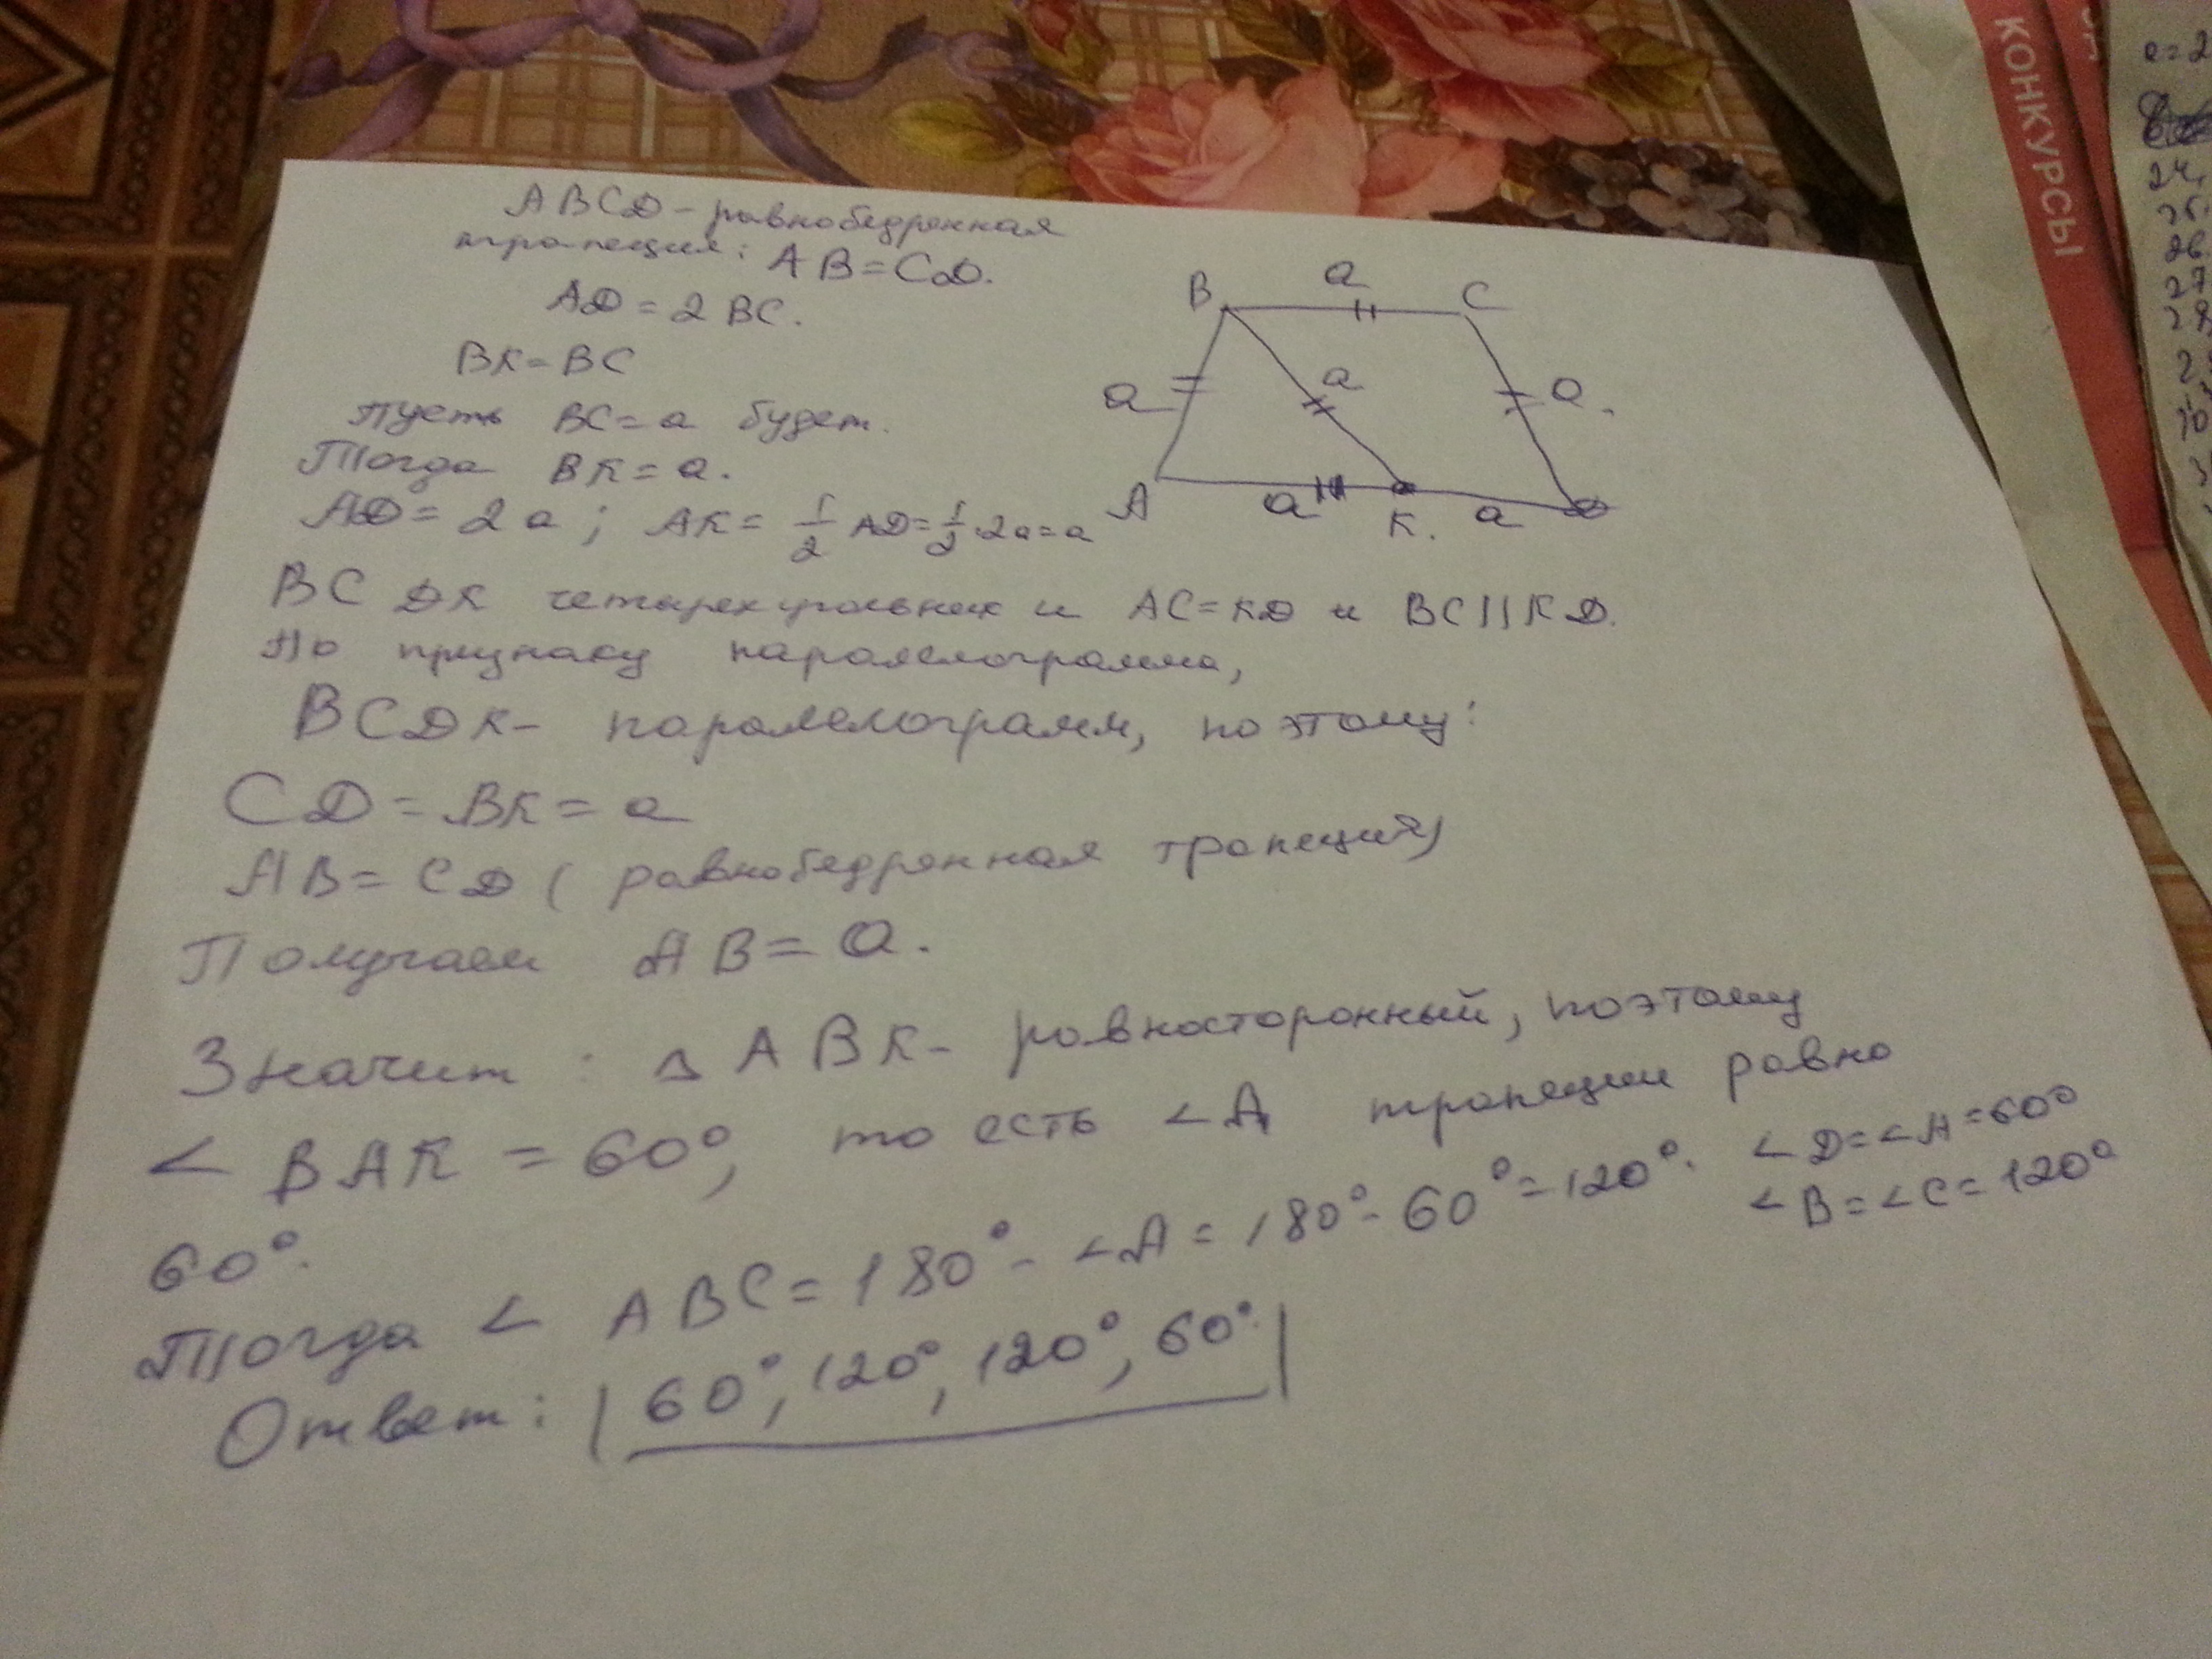 ABCD - равнобедренная
трапеция: AB = CD.
AD = 2 BC.
BK = BC
Пусть BC = a будет.
Тогда BK = a.
AD = 2a; AK = 1/2 AD = 1/2 · 2a = a
B a C
a a a.
A a K. a D
BCDK четырехугольник и AC = KD и BC || KD.
По признаку паралелограмма,
BCDK - паралелограмм, поэтому:
CD = BK = a
AB = CD (равнобедренная трапеция)
Получаем AB = a.
Значит: △ ABK - равносторонный, поэтому
∠ BAK = 60°, то есть ∠A трапеции равно
60°.
Тогда ∠ ABC = 180° - ∠A = 180° - 60° = 120°. ∠D = ∠A = 60°
∠B = ∠C = 120°
Ответ: | 60°, 120°, 120°, 60°. |
КОНКУРСЫ
24,
26
27
28